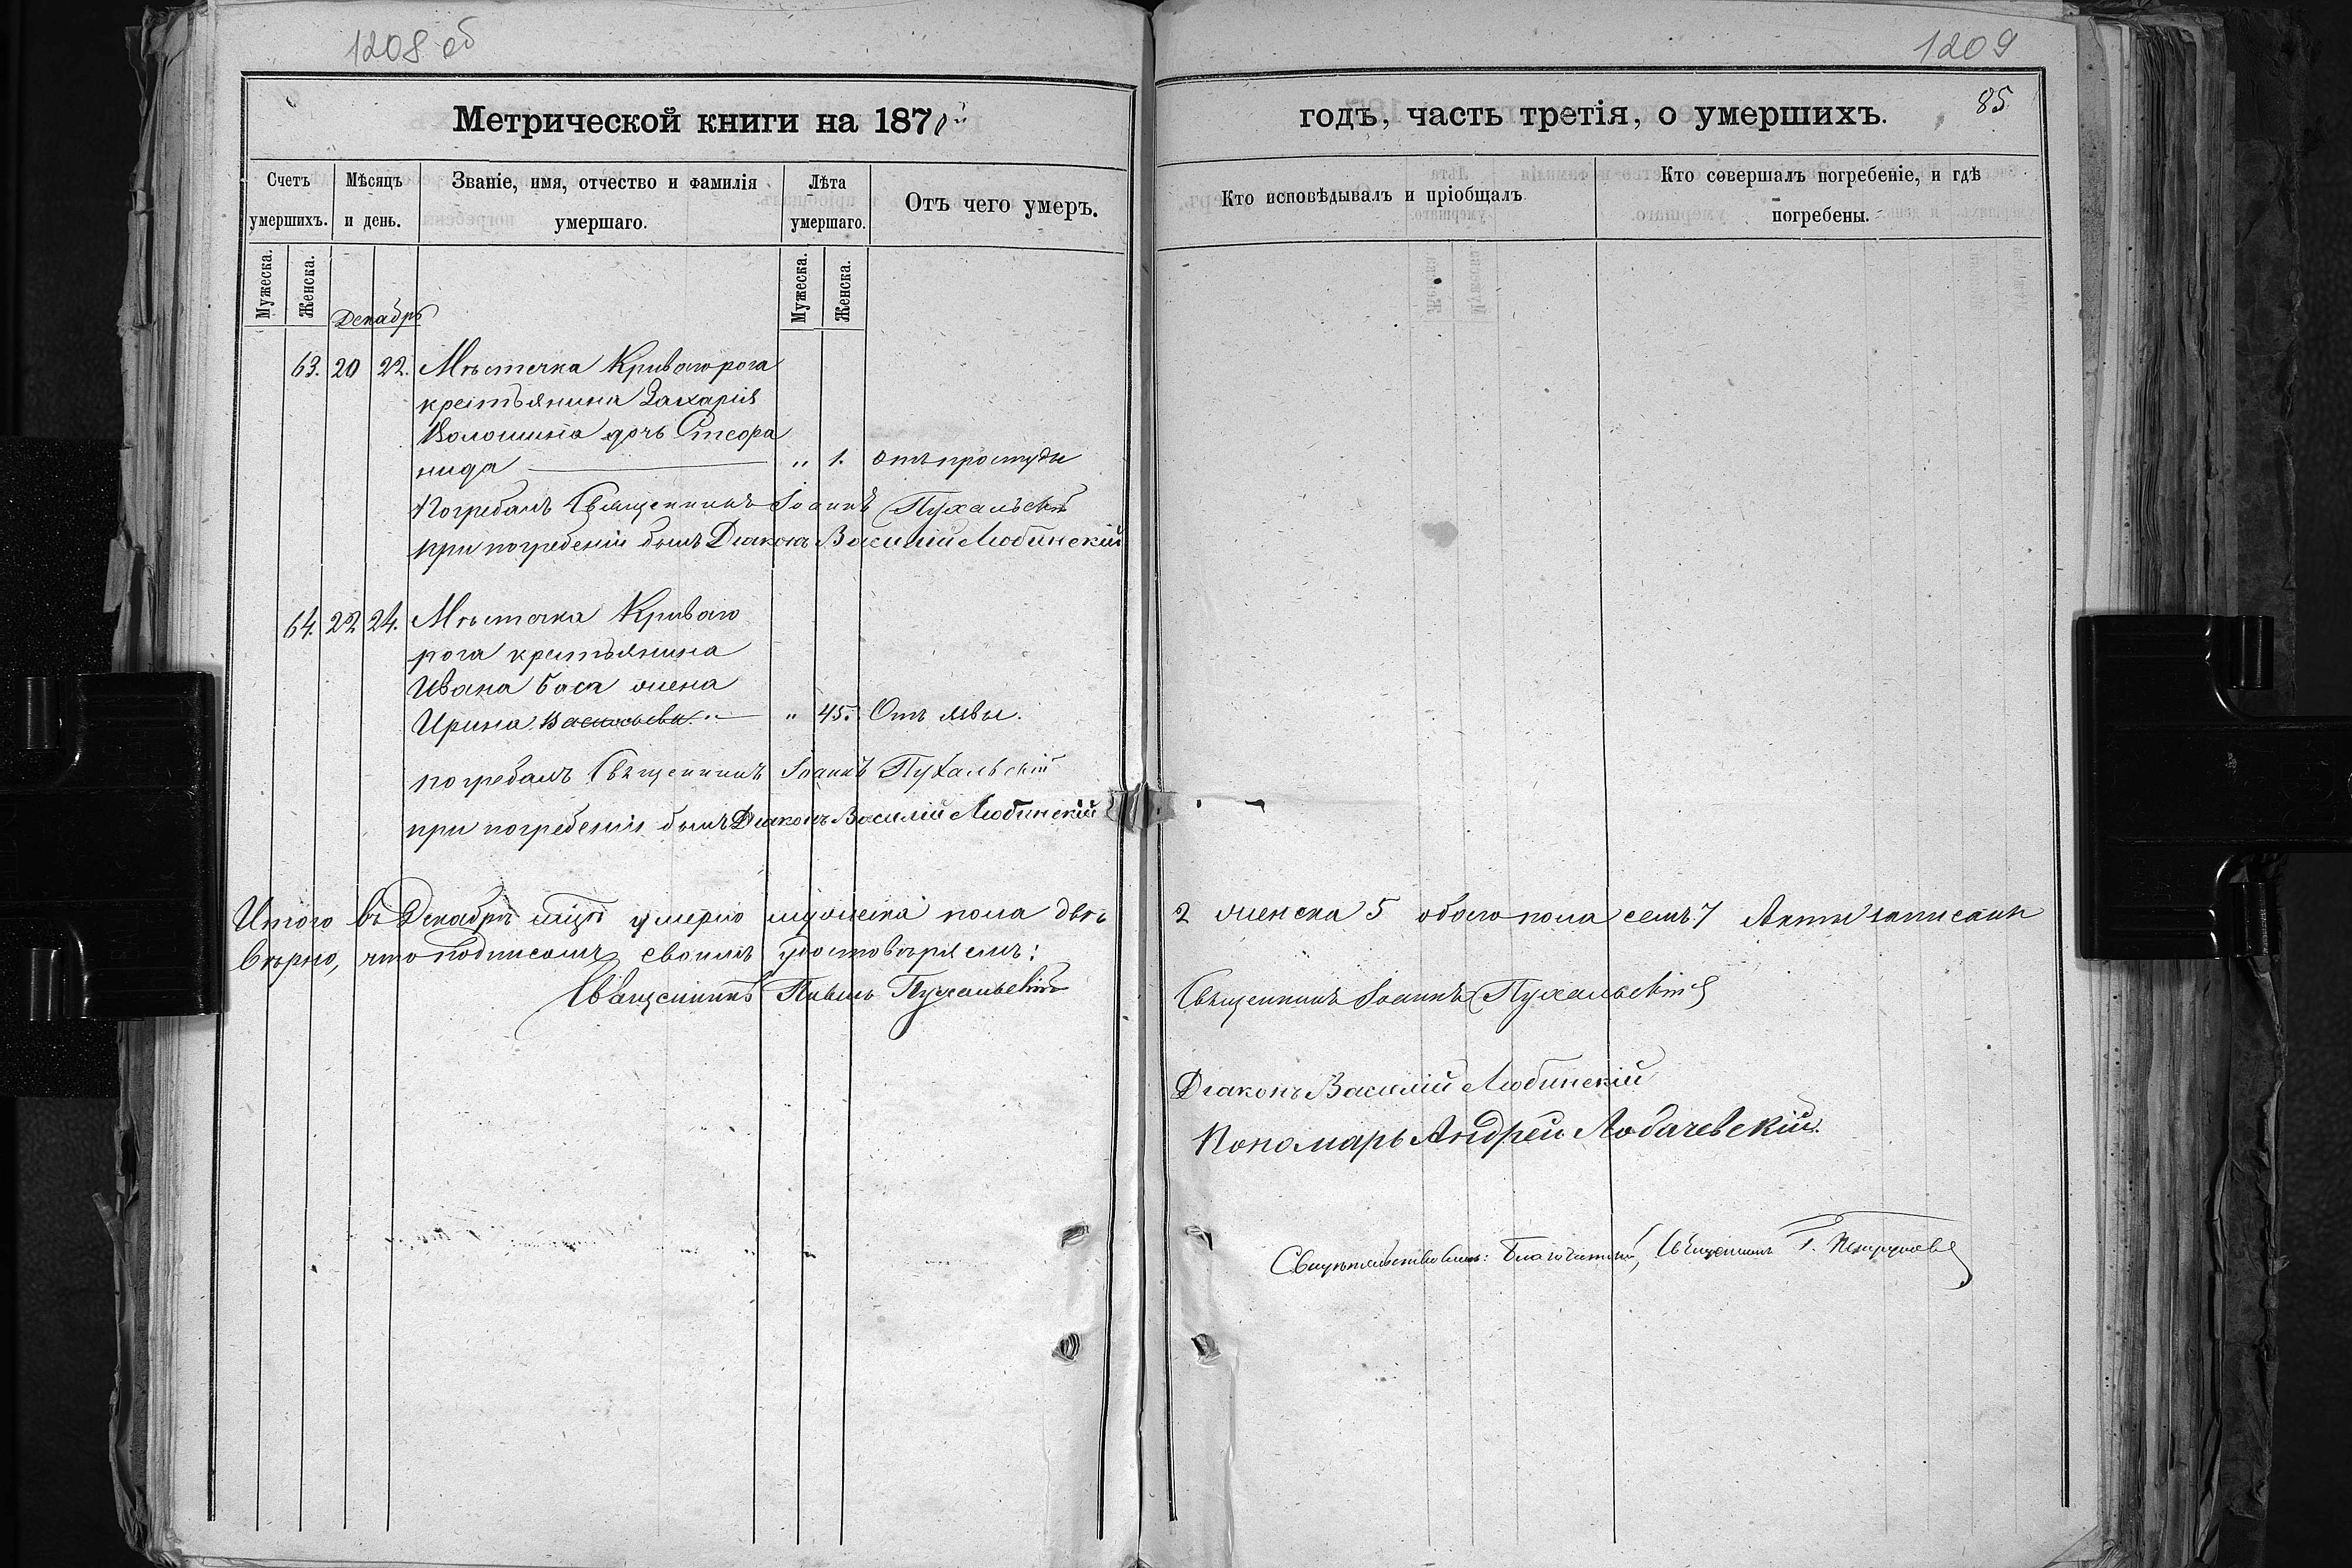 1208 об
1209
85
Метрической книги на 1871й
годъ, часть третія, о умершихъ.
Счетъ умершихъ.
Мѣсяцъ и день.
Званіе, имя, отчество и фамилія умершаго.
Лѣта умершаго.
Отъ чего умеръ.
Кто исповѣдывалъ и пріобщалъ
Кто совершалъ погребеніе, и гдѣ погребены.
Мужеска.
Женска.
Мужеска.
Женска.
Декабрь
63. 20 22. Мѣстечка Кривагорога
крестьянина Захарія
Волошина дочь
нида " 1. Отъ простуды
Погребалъ Священникъ Іоаннъ Пухальскій
при погребеніи былъ Діаконъ Василій Любинскій
64. 22 24. Мѣстечка Криваго
рога крестьянина
Ивана Баса жена
Ирина " 45. Отъ язвы.
погребалъ Священникъ Іоаннъ Пухальскій
при погребеніи былъ Діаконъ Василій Любинскій
Итого въ Декабрѣ мцѣ умерло мужеска пола двѣ 2 женска 5 обоего пола семь 7 Акты записаны
вѣрно, что подписомъ своимъ удостовѣряемъ:
Священникъ Павелъ Пухальскій
Священникъ Іоаннъ Пухальскій
Діаконъ Василій Любинскій
Пономарь Андрей Лобачевскій.
Свидѣтельствовалъ: Благочинный, Священникъ Г.